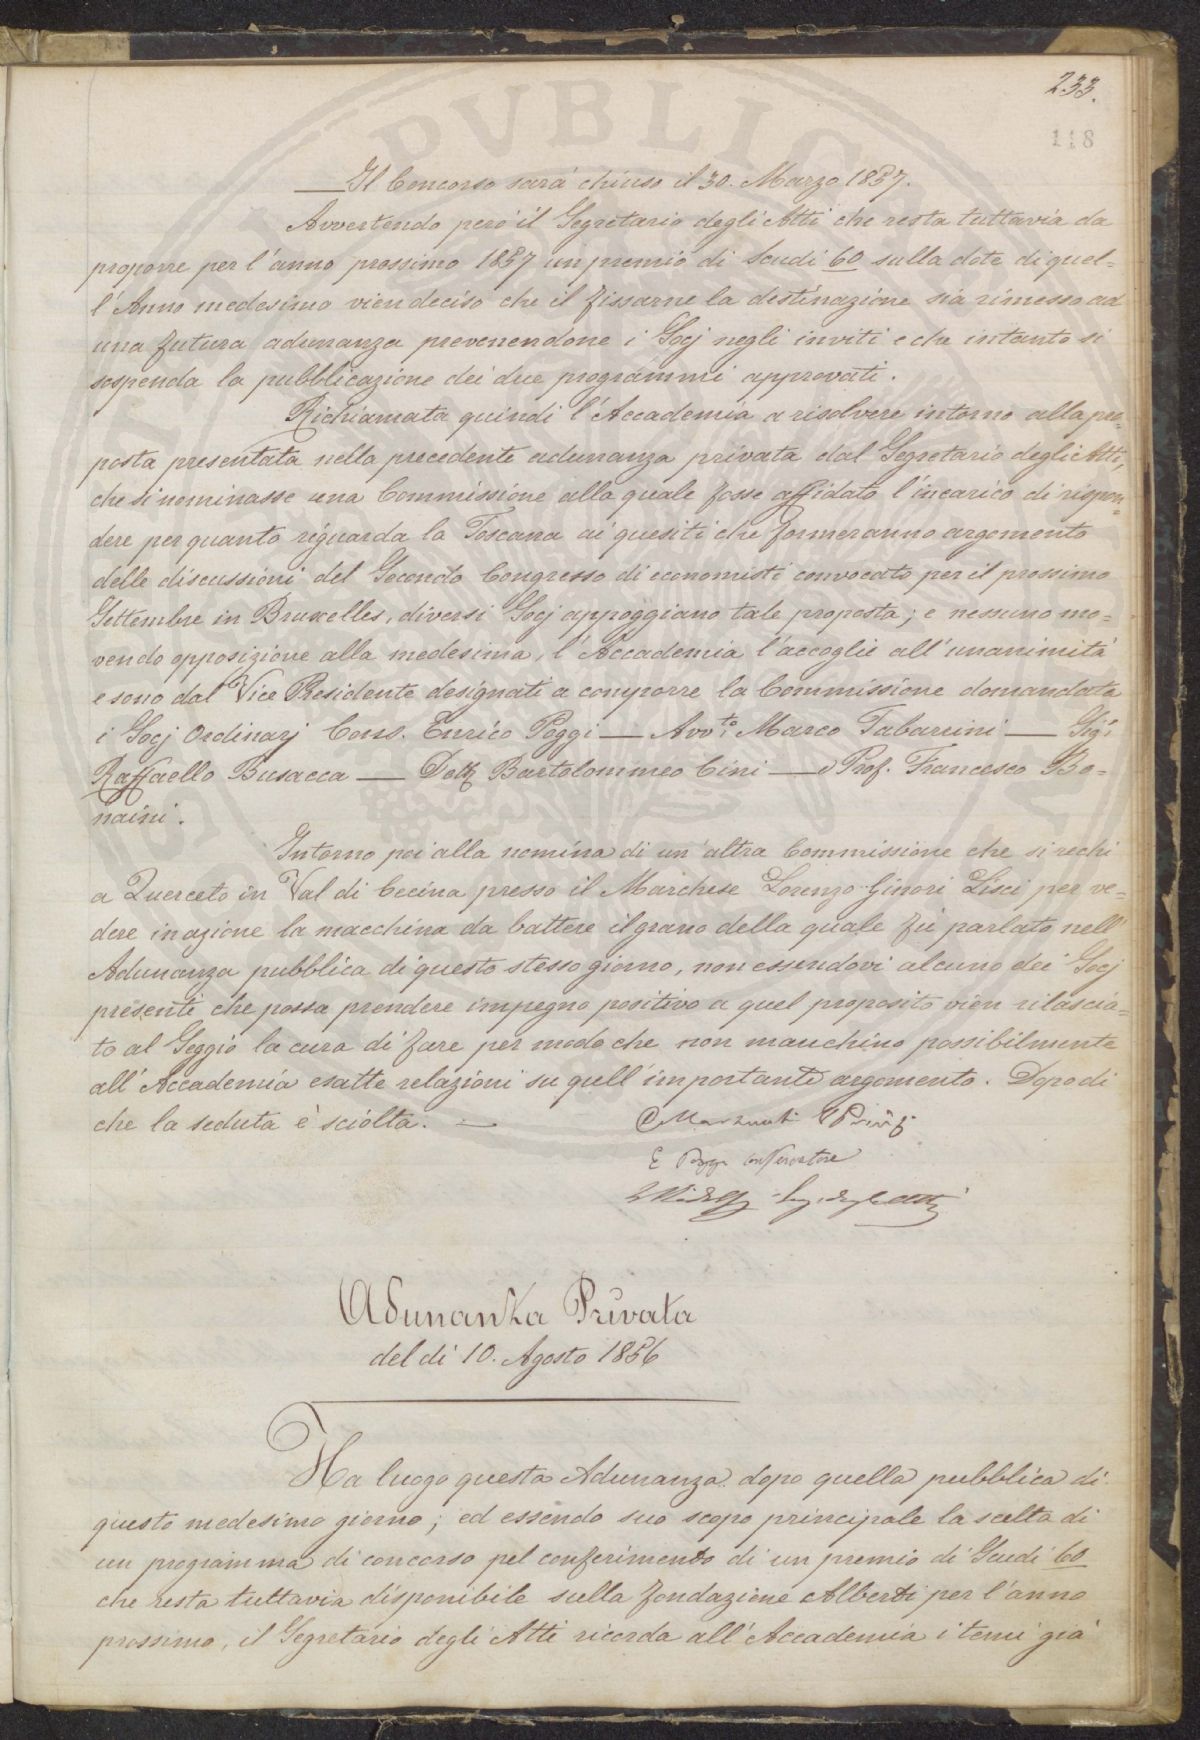 233.
118
Il Concorso sarà chiuso il 30. Marzo 1857.
Avvertendo però il Segretario degli Atti che resta tuttavia da
proporre per l'anno prossimo 1857 un premio di Scudi 60 sulla dote di quel=
l'Anno medesimo vien deciso che il fissarne la destinazione sia rimesso ad
una futura adunanza prevenendone i Socj negli inviti e che intanto si
sospenda la pubblicazione dei due programmi approvati.
Richiamata quindi l'Accademia a risolvere intorno alla pro=
posta presentata nella precedente adunanza privata dal Segretario degli Atti,
che si nominasse una Commissione alla quale fosse affidato l'incarico di rispon=
dere per quanto riguarda la Toscana ai quesiti che formeranno argomento
delle discussioni del Secondo Congresso di economisti convocato per il prossimo
Settembre in Bruxelles, diversi Socj appoggiano tale proposta; e nessuno mo=
vendo opposizione alla medesima, l'Accademia l'accoglie all'unanimità
e sono dal Vice Presidente designati a comporre la Commissione domandata
i Socj Ordinarj Cons. Enrico Poggi — Avv.to Marco Tabarrini — Sig.r
Raffaello Busacca — Dott. Bartolommeo Cini — e Prof. Francesco Bo=
naini.
Intorno poi alla nomina di un'altra Commissione che si rechi
a Querceto in Val di Cecina presso il Marchese Lorenzo Ginori Lisci per ve=
dere in azione la macchina da battere il grano della quale fù parlato nell'
Adunanza pubblica di questo stesso giorno, non essendovi alcuno dei Socj
presenti che possa prendere impegno positivo a quel proposito vien rilascia=
to al Seggio la cura di fare per modo che non manchino possibilmente
all'Accademia esatte relazioni su quell'importante argomento. Dopo di
che la seduta è sciolta. —
E Poggi conservatore
Seg. degli Atti
Adunanza Privata
del di 10. Agosto 1856
Ha luogo questa Adunanza dopo quella pubblica di
questo medesimo giorno; ed essendo suo scopo principale la scelta di
un programma di concorso pel conferimento di un premio di Scudi 60
che resta tuttavia disponibile sulla fondazione Alberti per l'anno
prossimo, il Segretario degli Atti ricorda all'Accademia i temi già